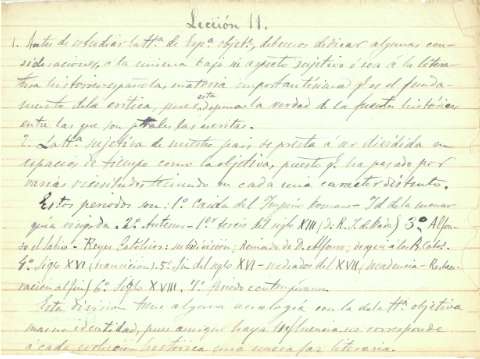 Lección 11.
1. Antes de estudiar la Hª de Espª objetª, debemos dedicar algunas con-
sideraciones, a la misma bajo su aspecto subjetivo ó sea a la litera-
tura historica española, materia importantísima pues es el funda-
mento de la critica, pues esta depura la verdad de la fuentes históricas
entre las que son pºrales las escritas.
2. La Hª subjetiva de nuestro pais se presta a ser dividida en
espacios de tiempo como la objetiva, puesto qe ha pasado por
varias vicisitudes teniendo en cada una caracter distinto.
Estos periodos son: 1º Caida del Imperio romano - Id de la monar
quia visigoda. 2º Anterior - 1er tercio del siglo XIII (de R. J. de Rada) 3º Alfon-
so el Sabio - Reyes Católicos: subdivision;
4º Siglo XVI (transicion). 5º fin del siglo XVI - mediados del XVII, decadencia - Restau-
racion al fin 6º Siglo XVIII, 7º Periodo contemporaneo.
Esta division tiene alguna analogía con la de la Hª objetiva
mas no identidad, pues aunque haya influencia no corresponde
á cada evolucion historica una nueva faz literaria.